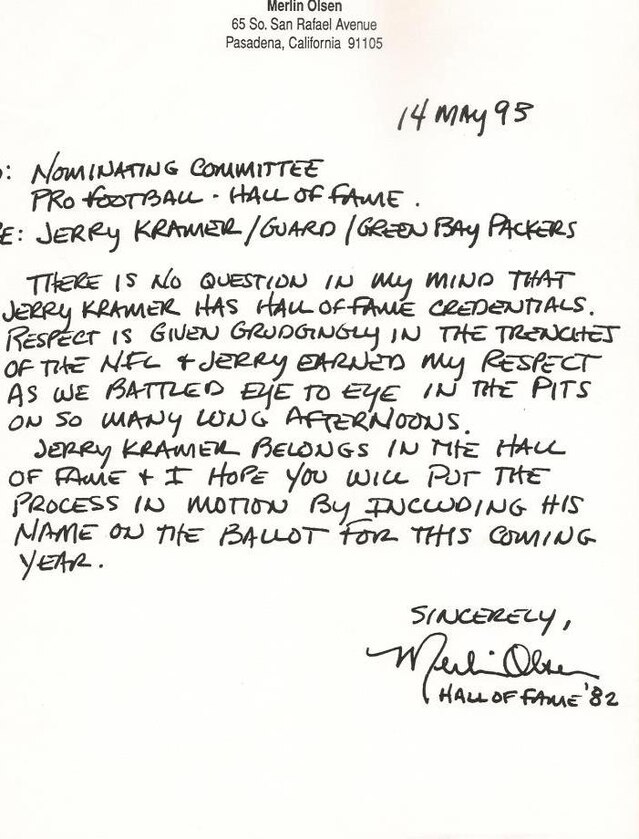 Merlin Olsen
65 So. San Rafael Avenue
Pasadena, California 91105
14 MAY 95
: NOMINATING COMMITTEE
PRO FOOTBALL - HALL OF FAME.
E: JERRY KRAMER/GUARD/GREEN BAY PACKERS
THERE IS NO QUESTION IN MY MIND THAT
JERRY KRAMER HAS HALL OF FAME CREDENTIALS.
RESPECT IS GIVEN GRUDGINGLY IN THE TRENCHES
OF THE NFL & JERRY EARNED MY RESPECT
AS WE BATTLED EYE TO EYE IN THE PITS
ON SO MANY LONG AFTERNOONS.
JERRY KRAMER BELONGS IN THE HALL
OF FAME & I HOPE YOU WILL PUT THE
PROCESS IN MOTION BY INCLUDING HIS
NAME ON THE BALLOT FOR THIS COMING
YEAR.
SINCERELY,
Merlin Olsen
HALL OF FAME '82